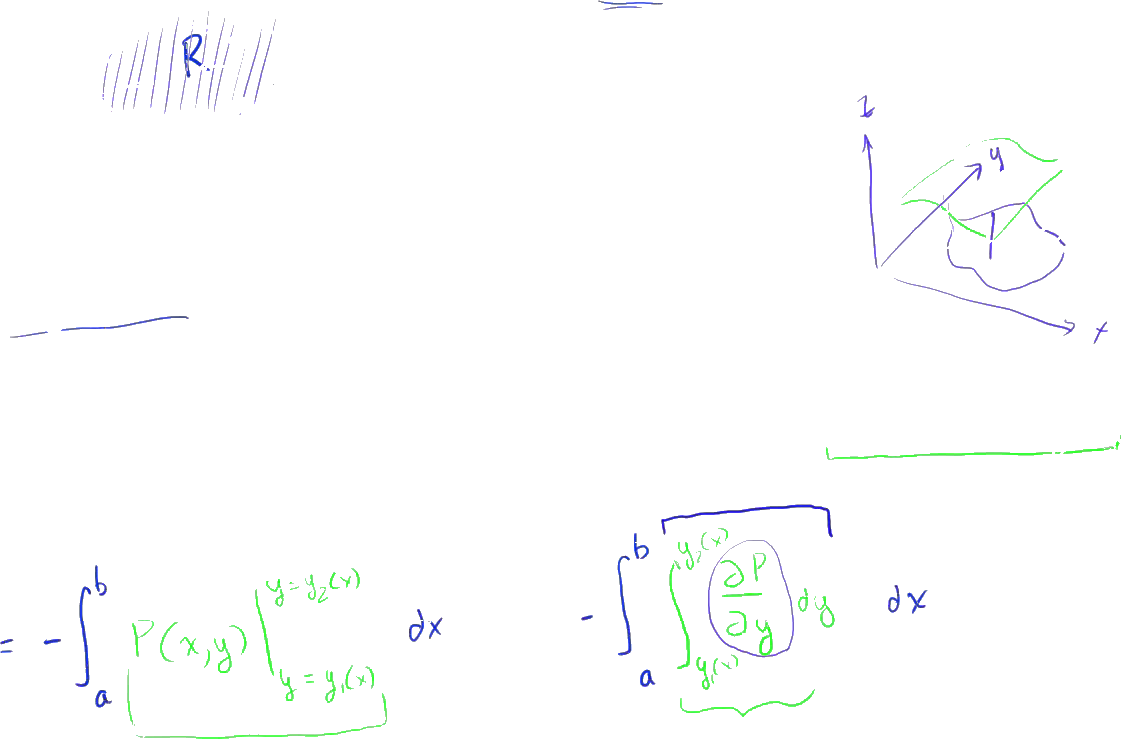 R
z
y
x
= - ∫_a^b P(x,y) |_{y = y₁(x)}^{y = y₂(x)} dx    - ∫_a^b ∫_{y₁(x)}^{y₂(x)} ∂P/∂y dy dx